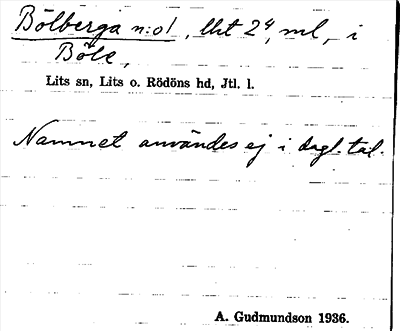 Bölberga n:o1, lht 2⁴, ml, i
Böle,
Lits sn, Lits o. Rödöns hd, Jtl. l.
Namnet användes ej i dagl. tal.
A. Gudmundson 1936.